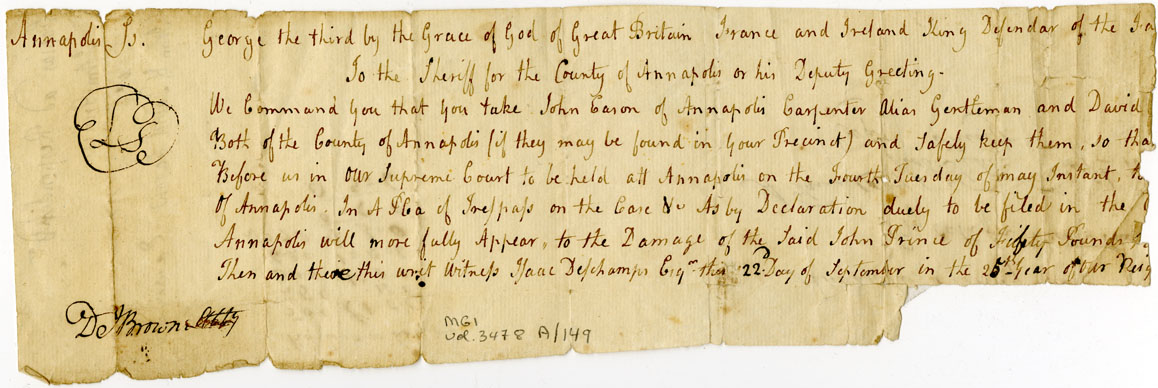 Annapolis Ss. George the third by the Grace of God of Great Britain France and Ireland King Defendar of the
To the Sheriff for the County of Annapolis or his Deputy Greeting.
LS
We Command you that you take John Eason of Annapolis Carpenter Alias Gentleman and David
Both of the County of Annapolis (if they may be found in your Precinct) and Safely keep them, so
Before us in our Supreme Court to be held att Annapolis on the Fourth Tuesday of may Instant,
Of Annapolis. In A Plea of Trespass on the Case &c As by Declaration duely to be filed in the
Annapolis will more fully Appear, to the Damage of the Said John Prince of Fifety Pounds
Then and there this writ Witness Isaac Deschamps Esqr. this 22d Day of September in the 25th Year of our
De Browne
MG1
vol. 3478 A/149